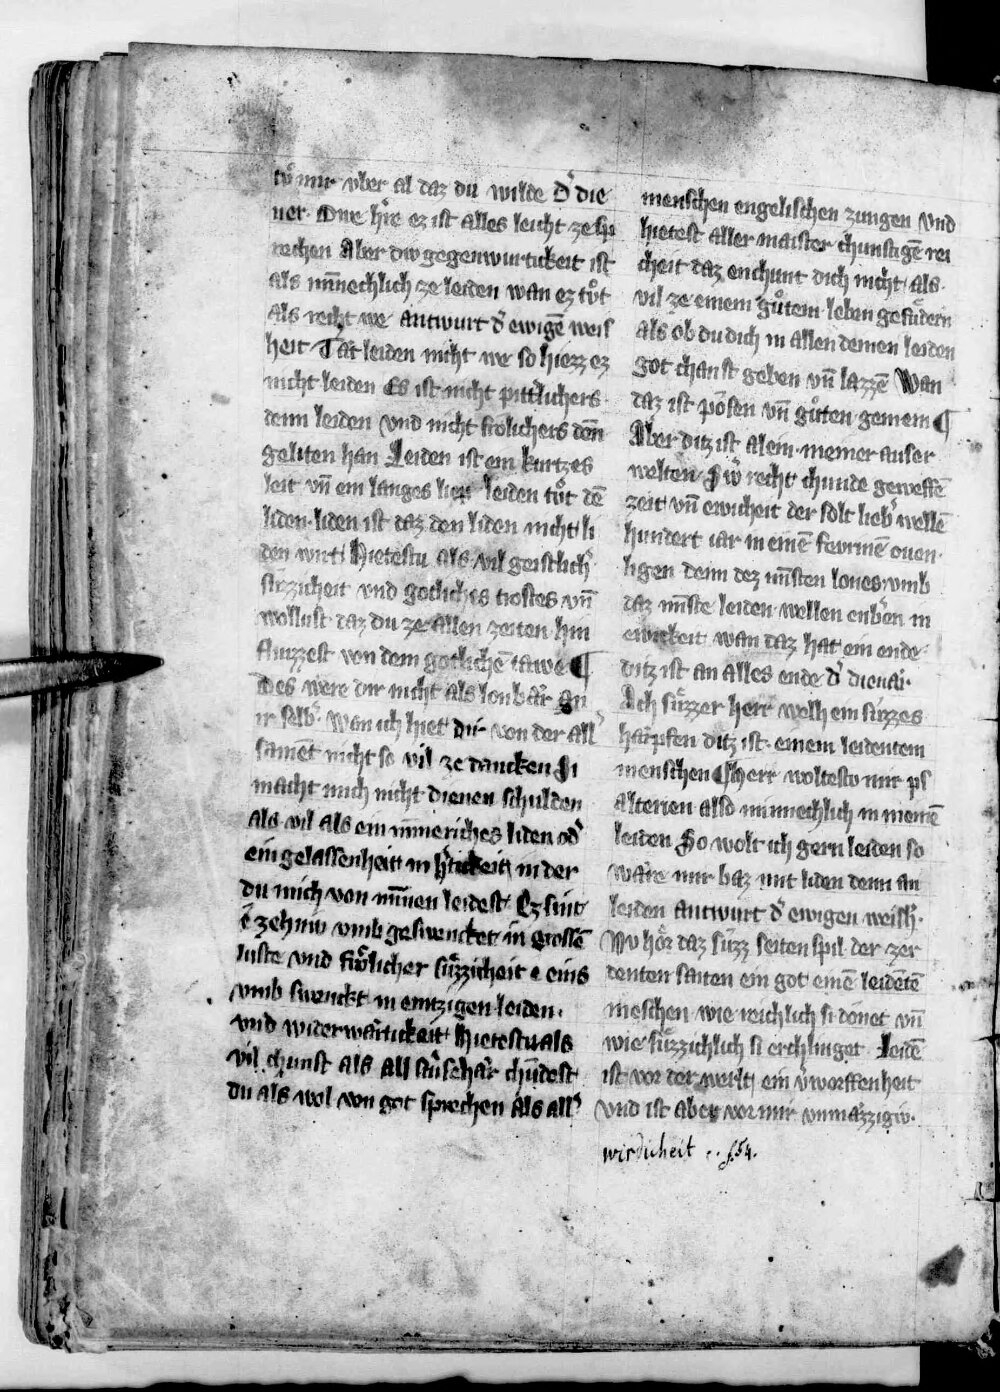 tuͦ mir vber al daz du wilde Dˀ die
ner Owe hˀre ez ist alles leicht ze sp
rechen Aber div gegenwurtickeit ist
als min̄echlich ze leiden wan ez tuͦt
als recht we antwurt dˀ ewigē weis
heit Taͤt leiden nicht we so hiezz ez
nicht leiden Es ist nicht pittˀlichers
denn leiden vnd nicht froͤlichers den̄
geliten han Leiden ist ein kurtzes
leit vn̄ ein langes liep leiden tuͦt dē
liden liden ist daz den liden nicht li
den wirt Hietestu als vil geistlichˀ
suͤzzicheit vnd gotliches trostes vn̄
wollust daz du ze allen zeiten hin
fluzzest von dem gotlichē tawe ¶
Des were dir nicht als lonbaͤr an
ir selbˀ Wan ich hiet dir von der all
samēt nicht so vil ze dancken Ji
macht mich nicht dienen schulden
als vil als ein inneriches liden odˀ
ein gelassenheit in hˀtickeit in der
du mich von min̄en leidest Ez sint
ē zehniv vmb geswencket in grossē
luste vnd froͤlicher suͤzzicheit e eins
vmb swenckt in emtzigen leiden
vnd widerwaͤrtickeit Hietestu als
vil chunst als all stˀnsehaͤr chu̇dest
du als wol von got sprechen als allˀ
menschen engelischen zungen vnd
hietest aller maister chunstigē rei
cheit daz enchunt dich nicht als
vil ze einem guͦtem leben gefuͤdern
als ob du dich in allen deinen leiden
got chanst geben vn̄ lazzē Wan
daz ist poͤsen vn̄ guͦten gemein ¶
Aber ditz ist alein meiner auser
welten Swˀ recht chunde gewessē
zeit vn̄ ewicheit der solt liebˀ wellē
hundert iar in einē fevrinē ouen
ligen denn dez min̄sten lones vmb
daz min̄ste leiden wellen enbˀen in
ewickeit wan daz hat ein ende
ditz ist an alles ende dˀ dienaͤr
Ach suͤzzer herr welh ein suͤzzes
harpfen ditz ist einem leidentem
menschen ¶ herr woltestv mir ps
alterien also minnechlich in meinē
leiden So wolt ich gern leiden so
waͤre mir baz mit liden denn an
leiden antwurt dˀ ewigen weishˀ
Nv hoͤr daz suͤzz seiten spil der zer
denten saiten ein got einē leidētē
meschen wie reichlich si doͤnet vn̄
wie suͤzzichlich si erchlinget Leidē
ist vor der werlt ein vˀworffenheit
vnd ist aber vor mir vnmaͤzzigiv
wirdicheit .. f. 54.